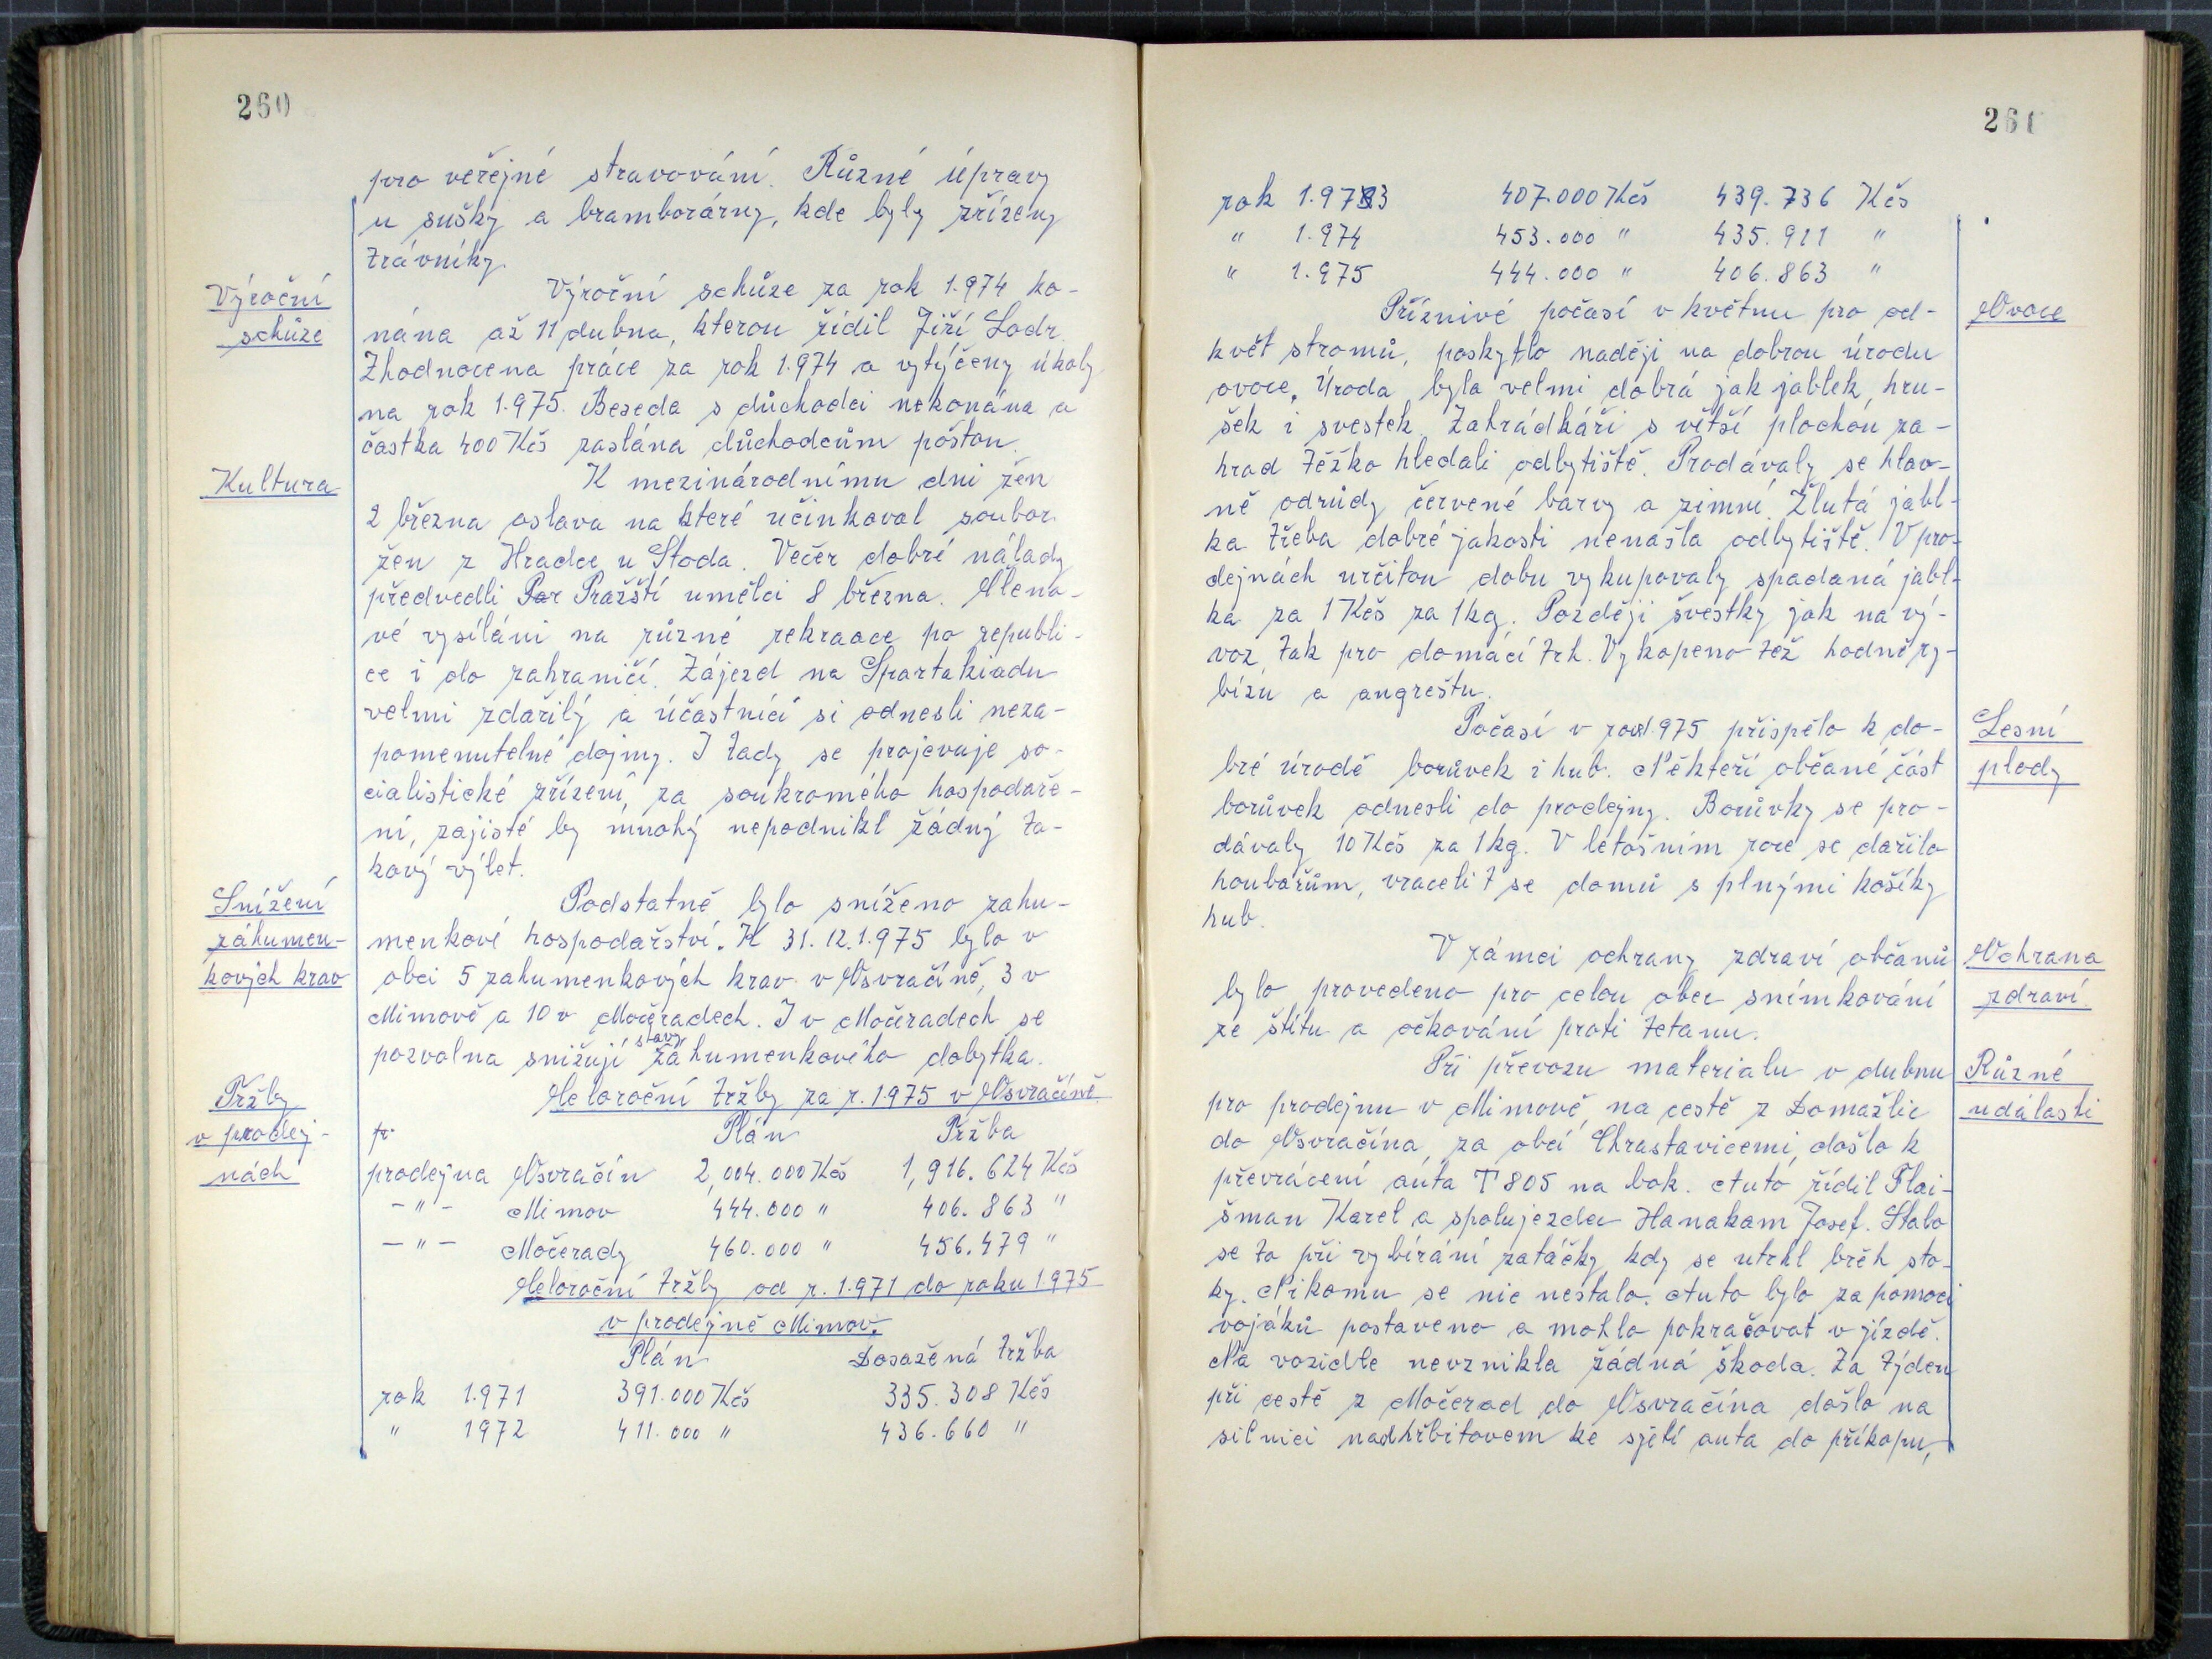 260
pro veřejné stravování. Různé úpravy
u sušky a bramborárny, kde byly zřízeny
trávníky.
Výroční
schůze
Výroční schůze za rok 1.974 ko-
nána až 11 dubna, kterou řídil Jiří Lodr.
Zhodnocena práce za rok 1.974 a vytýčeny úkoly
na rok 1.975. Beseda s důchodci nekonána a
častka 400 Kčs zaslána důchodcům poštou.
Kultura
K mezinárodnímu dni žen
2 března oslava na které učinkoval soubor
žen z Hradce u Stoda. Večer dobré nálady
předvedli Pražští umělci 8 března. Členo-
vé vysíláni na různé rekraace po republi-
ce i do zahraničí. Zájezd na Spartakiadu
velmi zdařilý a účastníci si odnesli neza-
pomenutelné dojmy. I tady se projevuje so-
cialistické zřízení, za soukromého hospodaře-
ní, zajisté by mnohý nepodnikl žádný ta-
kový výlet.
Snížení
záhumen-
kových krav
Podstatně bylo sníženo zahu-
menkové hospodařství. K 31.12.1.975 bylo v
obci 5 zahumenkových krav v Osvračíně, 3 v
Mimově a 10 v Močeradech. I v Močeradech se
pozvolna snižují stavy záhumenkového dobytka.
Tržby
v prodej-
nách
Celoroční tržby za r. 1.975 v Osvračíně
pr. Plán Tržba
prodejna Osvračín 2,004.000 Kčs 1,916.624 Kčs
-"- Mimov 444.000 " 406.863 "
-"- Močerady 460.000 " 456.479 "
Celoroční tržby od r. 1.971 do roku 1.975
v prodejně Mimov.
Plán Dosažená tržba
rok 1.971 391.000 Kčs 335.308 Kčs
" 1972 411.000 " 436.660 "
261
rok 1.973 407.000 Kčs 439.736 Kčs
" 1.974 453.000 " 435.911 "
" 1.975 444.000 " 406.863 "
Ovoce
Příznivé počasí v květnu pro od-
květ stromů, poskytlo naději na dobrou úrodu
ovoce. Úroda byla velmi dobrá jak jablek, hru-
šek i svestek. Zahrádkáři s větší plochou za-
hrad těžko hledali odbytiště. Prodávaly se hlav-
ně odrůdy červené barvy a zimní. Žlutá jabl-
ka třeba dobré jakosti nenašla odbytiště. V pro-
dejnách určitou dobu vykupovaly spadaná jabl-
ka za 1 Kčs za 1 kg. Později švestky jak na vý-
voz, tak pro domácí trh. Vykopeno též hodně ry-
bízu a angreštu.
Lesní
plody
Počasí v 1.975 přispělo k do-
bré úrodě borůvek i hub. Někteří občané část
borůvek odnesli do prodejny. Borůvky se pro-
dávaly 10 Kčs za 1 kg. V letošním roce se dařilo
houbařům, vraceli se domů s plnými košíky
hub.
Ochrana
zdraví
V rámci ochrany zdraví občanů
bylo provedeno pro celou obec snímkování
ze štítu a očkování proti tetanu.
Různé
události
Při převozu materialu v dubnu
pro prodejnu v Mimově, na cestě z Domažlic
do Osvračína, za obcí Chrastavicemi, došlo k
převrácení auta T 805 na bok. Auto řídil Flai-
šman Karel a spolujezdec Hanakam Josef. Stalo
se to při vybírání zatáčky, kdy se utrhl břeh sto-
ky. Nikomu se nic nestalo. Auto bylo za pomoci
vojáků postaveno a mohlo pokračovat v jízdě.
Na vozidle nevznikla žádná škoda. Za týden
při cestě z Močerad do Osvračína došlo na
silnici nad hřbitovem ke sjetí auta do příkopu,